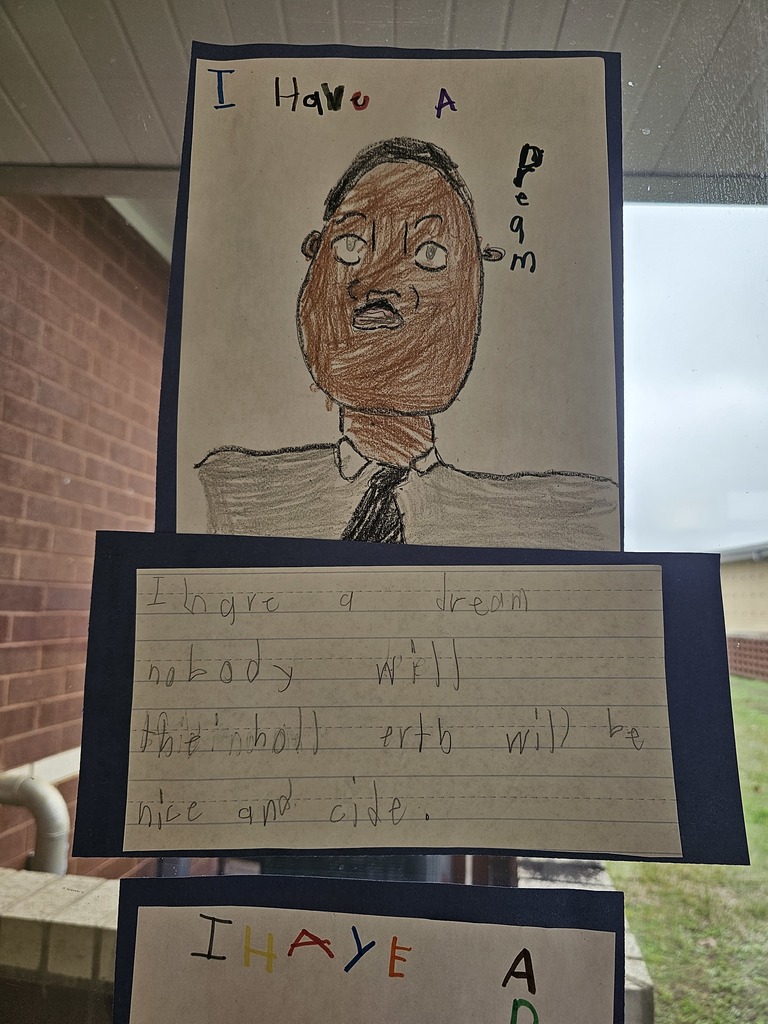 I Have A
Dream
I have a dream
nobody will
holl erth will be
nice and cide.
I HAVE A
D